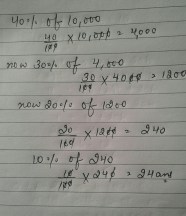 40% of 10,000
40/100 × 10,000 = 4,000
now 30% of 4,000
30/100 × 4000 = 1200
now 20% of 1200
20/100 × 1200 = 240
10% of 240
10/100 × 240 = 24 ans